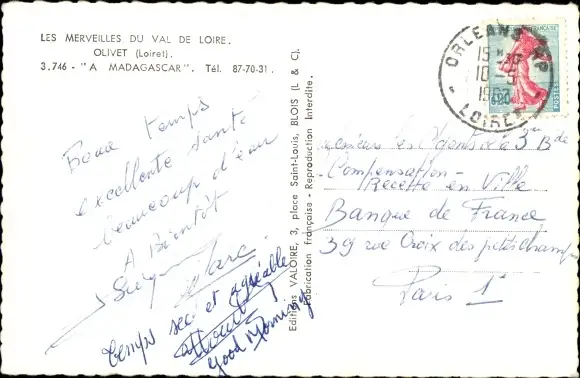 LES MERVEILLES DU VAL DE LOIRE.
OLIVET (Loiret).
3.746 - "A MADAGASCAR". Tél. 87-70-31.
Bons temps
excellente santé
beaucoup d'eau
A Bientôt
Marc
temps sec et agréable
Good Morning
Editions VALOIRE, 3, place Saint-Louis, BLOIS (L & C).
Fabrication française - Reproduction Interdite.
FRANÇAISE
POSTES
0.20
ORLEANS
15 H
10 - 5
LOIRET
Messieurs les Agents 3 Bde
Compensation -
Recette en Ville
Banque de France
39 rue Croix des petits champs
Paris 1er